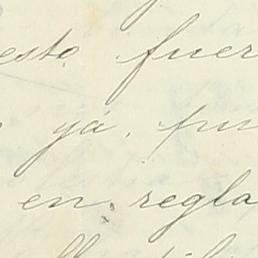 esto fuer
ya, pu
en regla